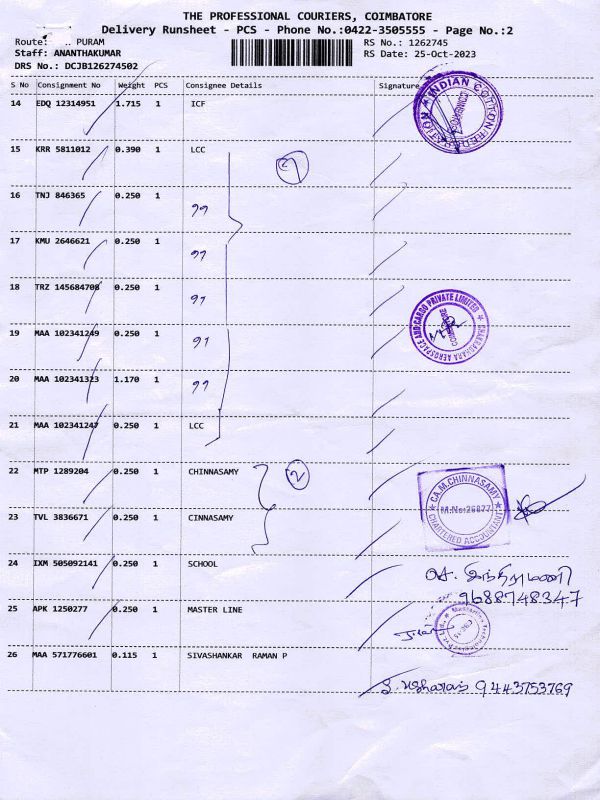 THE PROFESSIONAL COURIERS, COIMBATORE
Delivery Runsheet - PCS - Phone No.:0422-3505555 - Page No.:2
Route: .. PURAM RS No.: 1262745
Staff: ANANTHAKUMAR RS Date: 25-Oct-2023
DRS No.: DCJB126274502
S No Consignment No Weight PCS Consignee Details Signature
14 EDQ 12314951 1.715 1 ICF
INDIAN COTTON
15 KRR 5811012 0.390 1 LCC
16 TNJ 846365 0.250 1 ,,
17 KMU 2646621 0.250 1 ,,
18 TRZ 145684708 0.250 1 ,,
CHAKRADHARA AEROSPACE AND CARGO PRIVATE LIMITED
COIMBATORE
19 MAA 102341249 0.250 1 ,,
20 MAA 102341323 1.170 1 ,,
21 MAA 102341247 0.250 1 LCC
22 MTP 1289204 0.250 1 CHINNASAMY 2
CA.M.CHINNASAMY
M.No:26877
CHARTERED ACCOUNTANT
23 TVL 3836671 0.250 1 CINNASAMY
24 IXM 505092141 0.250 1 SCHOOL
9688748347
25 APK 1250277 0.250 1 MASTER LINE
26 MAA 571776601 0.115 1 SIVASHANKAR RAMAN P
9443753769